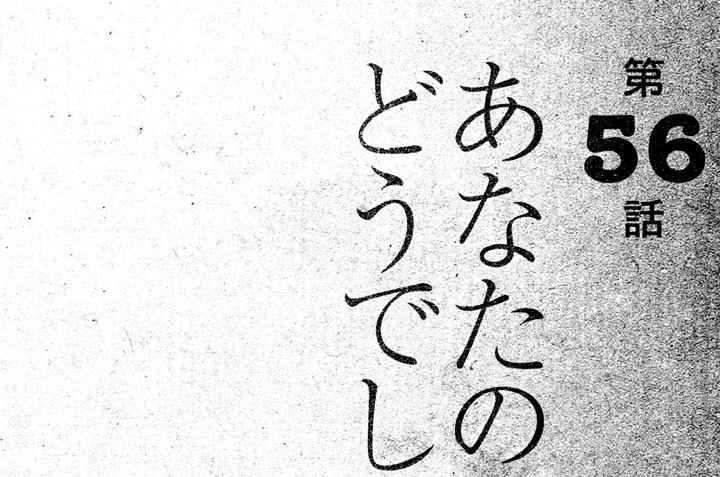 第56話
あなたの
どうでし